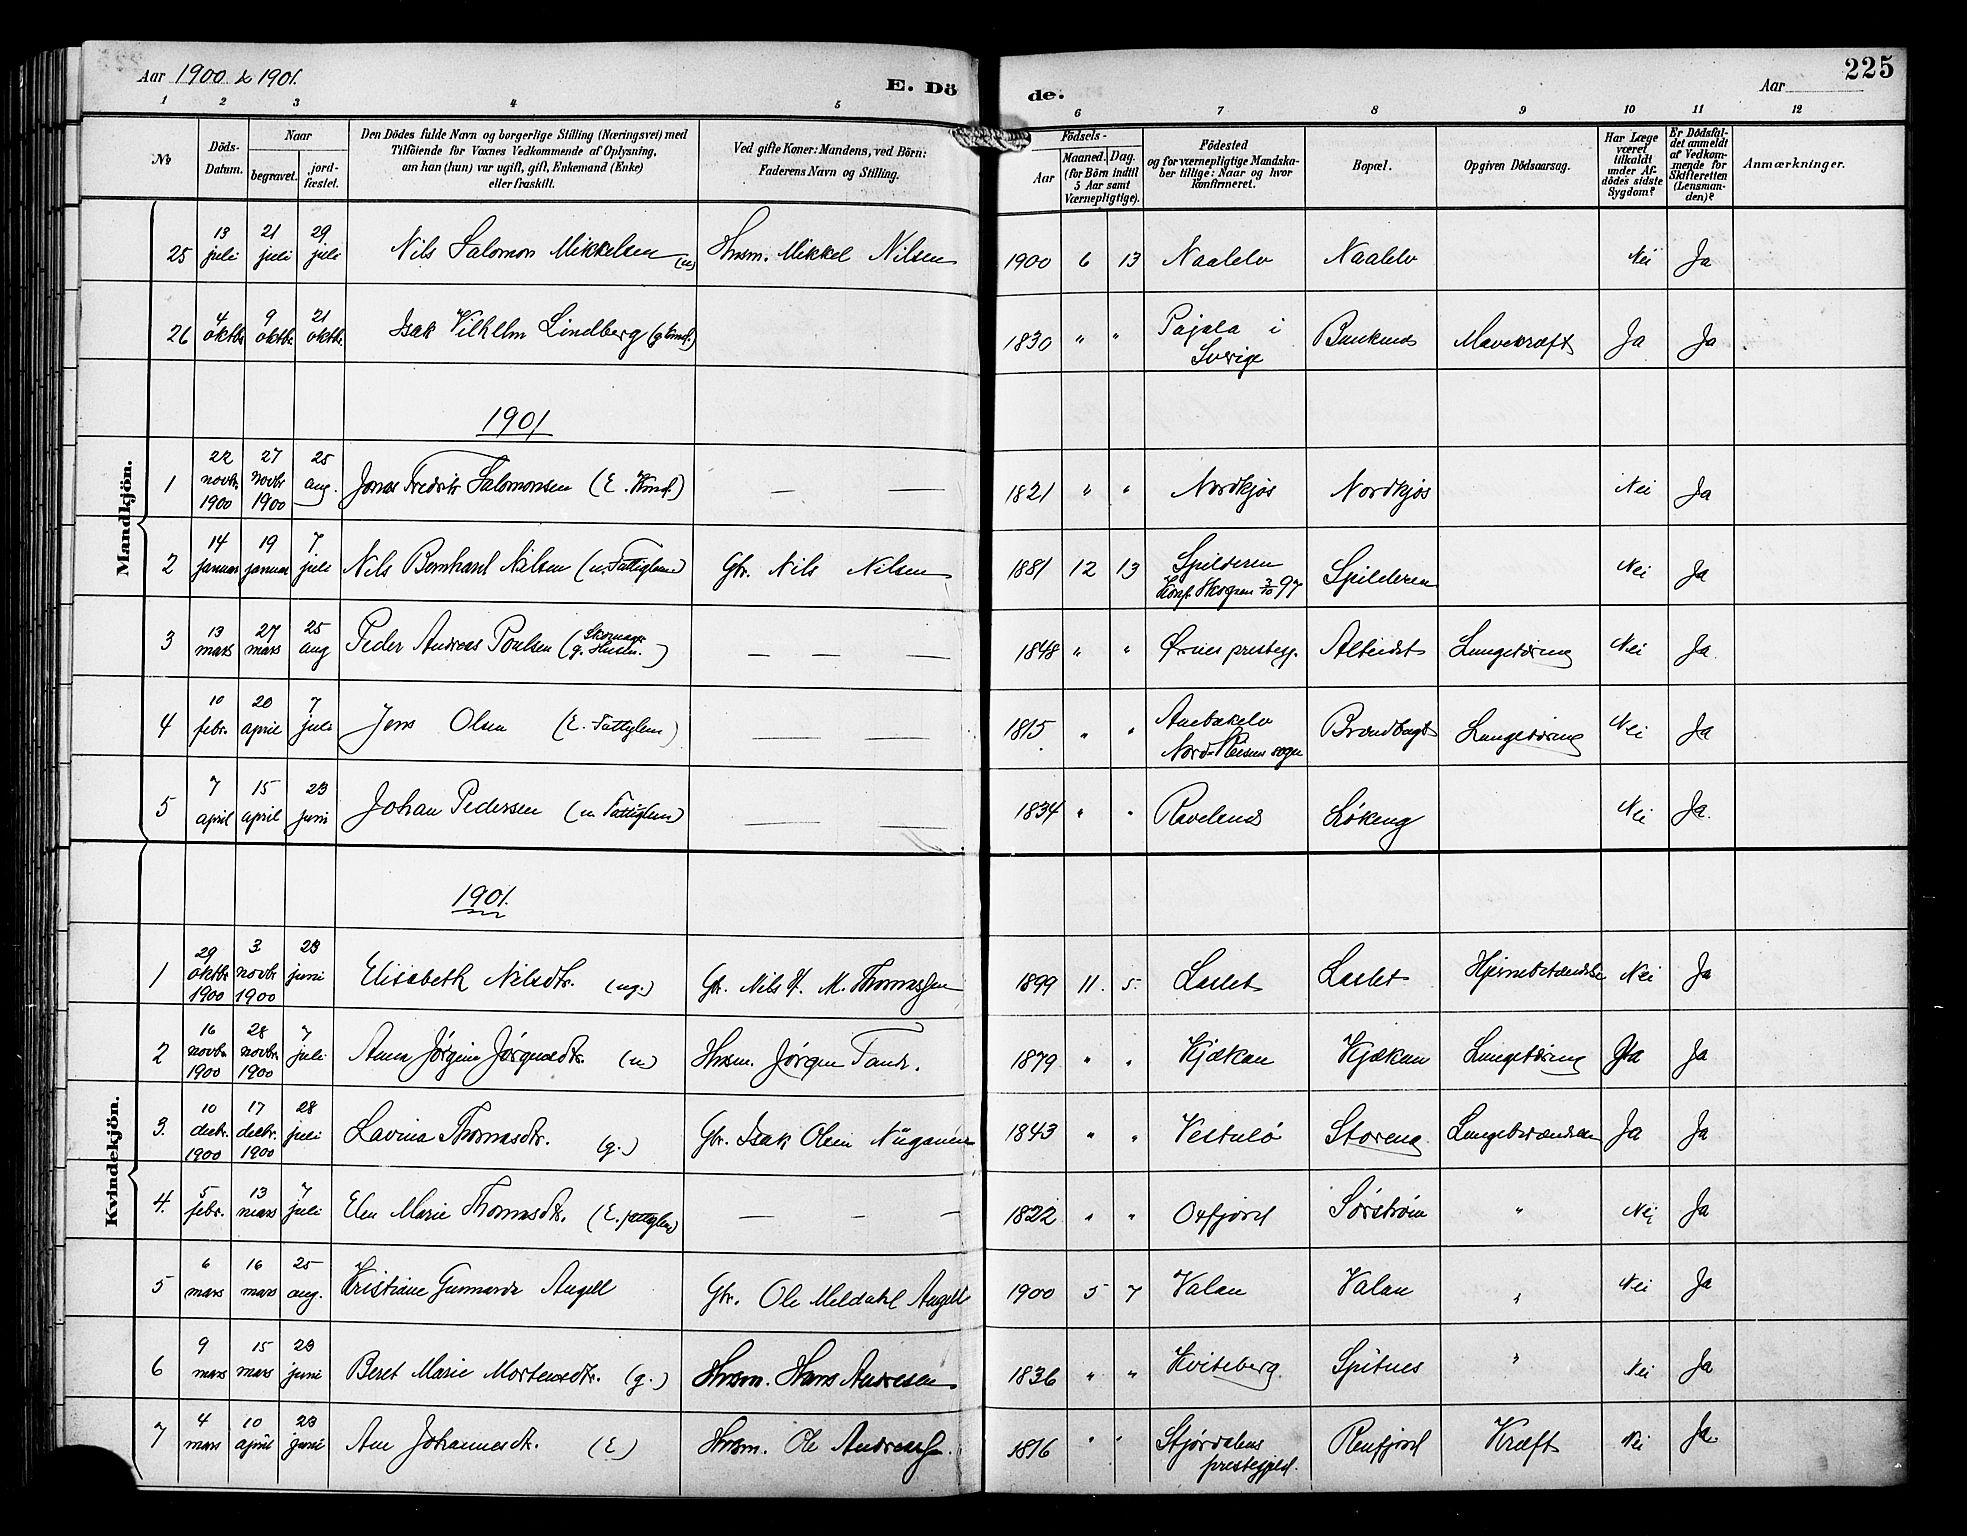 Aar 1900 & 1901.
E. Dö
de.
Aar
225
1 2 3 4 5 6 7 8 9 10 11 12
No
Döds-Datum.
Naar
begravet.
jord-fæstet.
Den Dödes fulde Navn og borgerlige Stilling (Næringsvei) med
Tilföiende for Voxnes Vedkommende af Oplysning,
om han (hun) var ugift, gift, Enkemand (Enke)
eller fraskilt.
Ved gifte Koner: Mandens, ved Börn:
Faderens Navn og Stilling.
Födsels-
Aar
Maaned. Dag.
(for Börn indtil
5 Aar samt
Værnepligtige).
Födested
og for værnepligtige Mandska-
ber tillige: Naar og hvor
konfirmeret.
Bopæl.
Opgiven Dödsaarsag.
Har Læge
været
tilkaldt
under Af-
dödes sidste
Sygdom?
Er Dödsfal-
det anmeldt
af Vedkom-
mende for
Skifteretten
(Lensman-
den)?
Anmærkninger.
Mandkjön.
25 13 juli 21 juli 29 juli Nils Salomon Mikkelsen (u) Husm. Mikkel Nilsen 1900 6 13 Naalelv Naalelv Nei Ja
26 4 oktbr 9 oktbr. 21 oktbr. Isak Vilhelm Lindberg 1830 " " Pajala i Sverige Mavekræft Ja Ja
1901
1 22 novbr. 1900 27 novbr 1900 25 aug. Jonas Fredrik Salomonsen — — 1821 " " Nordkjos Nordkjos Nei Ja
2 14 januar 19 januar 7 juli Nils Bernhard Nilsen (u. Fattiglem) Gbr. Nils Nilsen 1881 12 13 Spilderen Konf. Skogsen 3/10 97 Spilderen Nei Ja
3 13 mars 27 mars 25 aug Peder Andreas Poulsen — — — 1848 " " prestegj. Alteidet Lungetæring Nei Ja.
4 10 febr. 20 april 7 juli Jens Olsen (E. Fattiglem) — — — 1815 " " Lungetæring Nei Ja
5 7 april 15 april 23 juni Johan Pedersen (u Fattiglem) — — 1834 " " Ravelnes Løkeng Nei Ja.
1901.
Kvindekjön.
1 29 oktbr 1900 3 novbr 1900 23 juni Elisabeth Nilsdtr. (ug.) Gbr. Nils H. M. Thomassen 1899 11. 5. Laslet Laslet Hjernebetændelse Nei Ja
2 16 novbr. 1900 28 novbr. 1900 7 juli Anna Jørgine Jørgensdtr. (u) Husm. Jørgen 1879 " " Kjækan Kjækan Lungetæring Ja Ja
3. 10 decbr. 1900 17 decbr. 1900 28 juli Lavina Thomasdtr. (g.) Gbr. Isak Olsen 1843 " " Storeng Lungebetændelse Ja Ja
4. 5 febr. 13 mars 7 juli Elen Marie Thomasdtr. (E. fattiglem) — — — 1822 " " Oxfjord Sørstrøm " Nei Ja
5 6 mars 16 mars 25 aug. Kristiane Gunnarda Angell Gbr. Ole Meldahl Angell 1900 5 7 Valan Valan " Nei Ja
6 9 mars 15 mars 23 juni Beret Marie Mortensdtr. (g.) Husm. Hans Andresen 1836 " " Kviteberg. Spitnes " Nei Ja
7 4 mars 10 april 23 juni Ane Johannesdtr. (E) Husm. Ole Andreassen. 1816 " " Stjørdalens prestegjeld. Renfjord Kræft Nei Ja